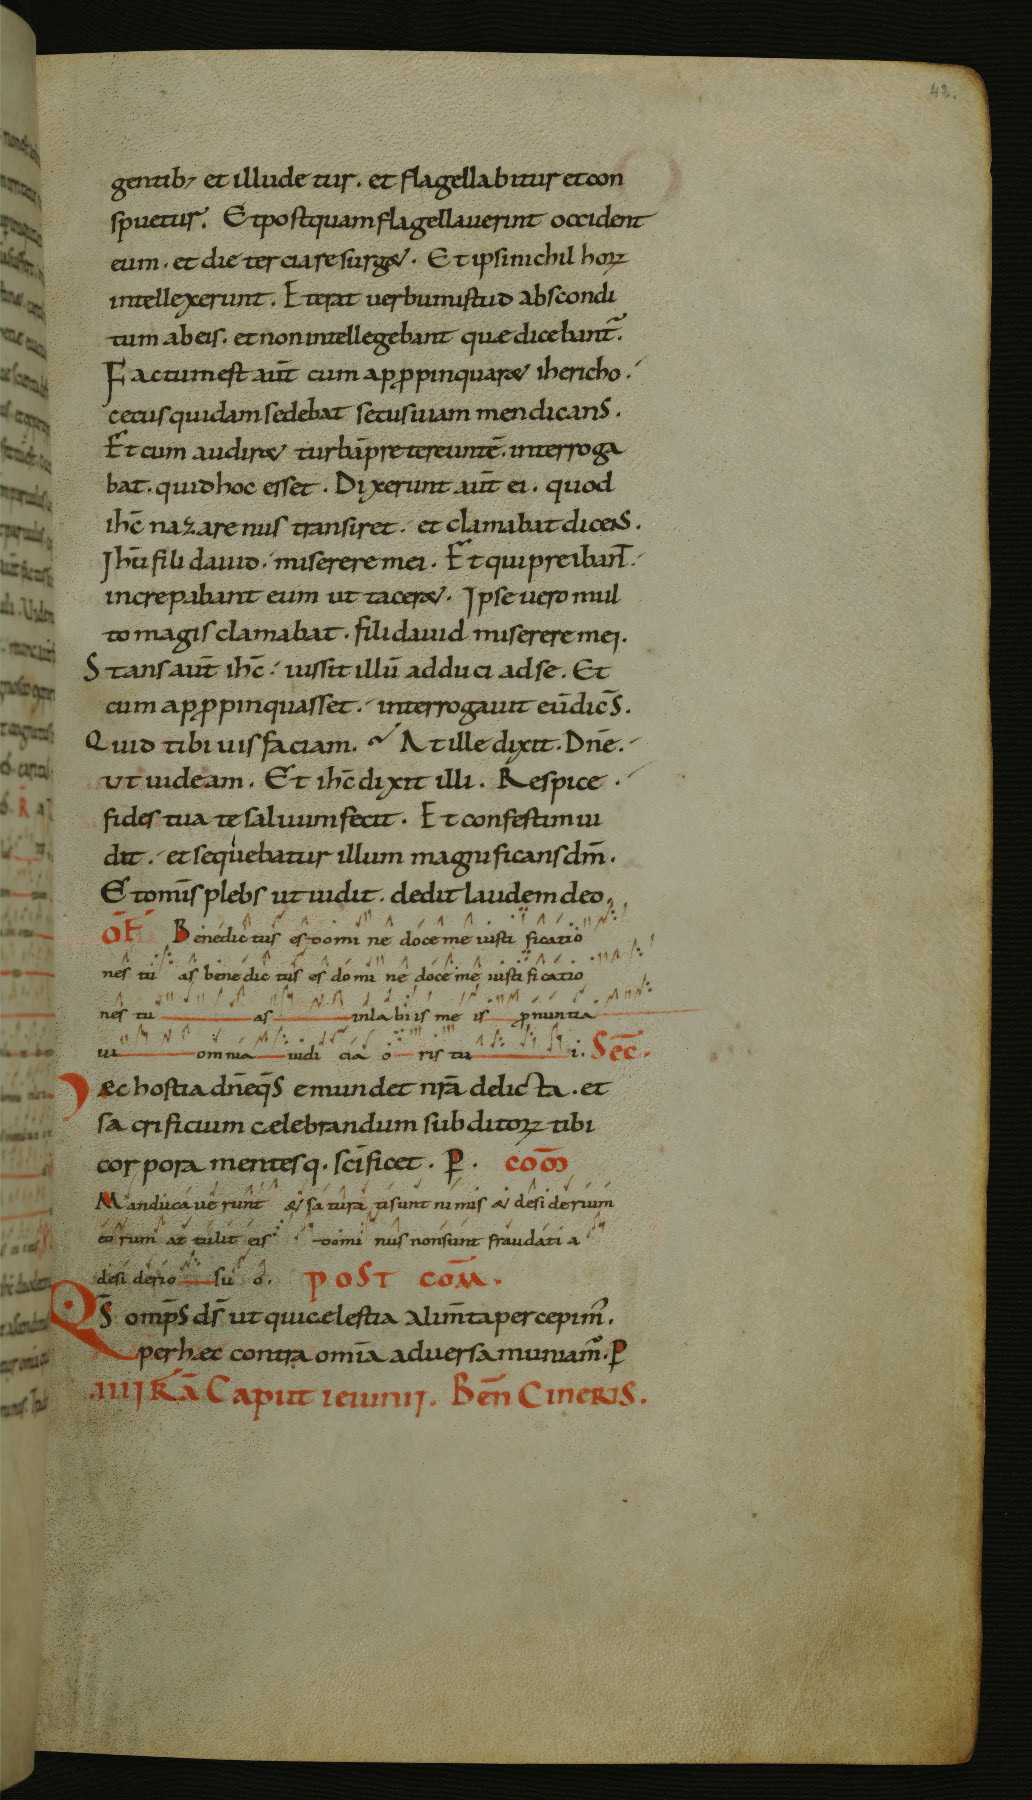 42.
gentib; et illudetur. et flagellabitur et con
spuetur. Et postquam flagellauerint occident
eum. et die tercia resurget. Et ipsi nichil hoꝝ
intellexerunt. Et erat uerbum istud abscondi
tum ab eis. et non intellegebant quæ dicebant̃.
Factum est aut̄ cum apꝓpinquaret ihericho.
cecus quidam sedebat secus uiam mendicans.
Et cum audiret turbā pretereuntē. interroga
bat. quid hoc esset. Dixerunt aut̄ ei. quod
ihc̄ nazarenus transiret. et clamabat dicens.
Ihū fili dauid. miserere mei. Et qui preibant.
increpabant eum ut taceret. Ipse uero mul
to magis clamabat. fili dauid miserere mei.
Stans aut̄ ihc̄. iussit illū adduci ad se. Et
cum apꝓpinquasset. interrogauit eū dicēs.
Quid tibi uis faciam. At ille dixit. Dn̄e.
ut uideam. Et ihc̄ dixit illi. Respice.
fides tua te saluum fecit. Et confestim ui
dit. et sequebatur illum magnificans dm̄.
Et omīs plebs ut uidit. dedit laudem deo.
OF̄ Benedictus es domine doce me iustificatio
nes tuas benedictus es domine doce me iustificatio
nes tu as in labiis me is ꝓnuntia
ui omnia iudicia oris tu i. Sec̄.
Hæc hostia dn̄e qs̄ emundet nr̄a delicta. et
sacrificium cælebrandum subditoꝝ tibi
corpora mentesq. sc̄ificet. P. com̄
Manducauerunt et saturati sunt nimis et desiderium
eorum attulit eis dominus non sunt fraudati a
desiderio su o. post com̄.
Qs̄ omp̄s ds̄ ut qui cælestia alim̄ta percepim̄.
per hæc contra omīa aduersa muniam̄. P
.IIII K̄A Caput ieiunii. Ben̄ Cineris.